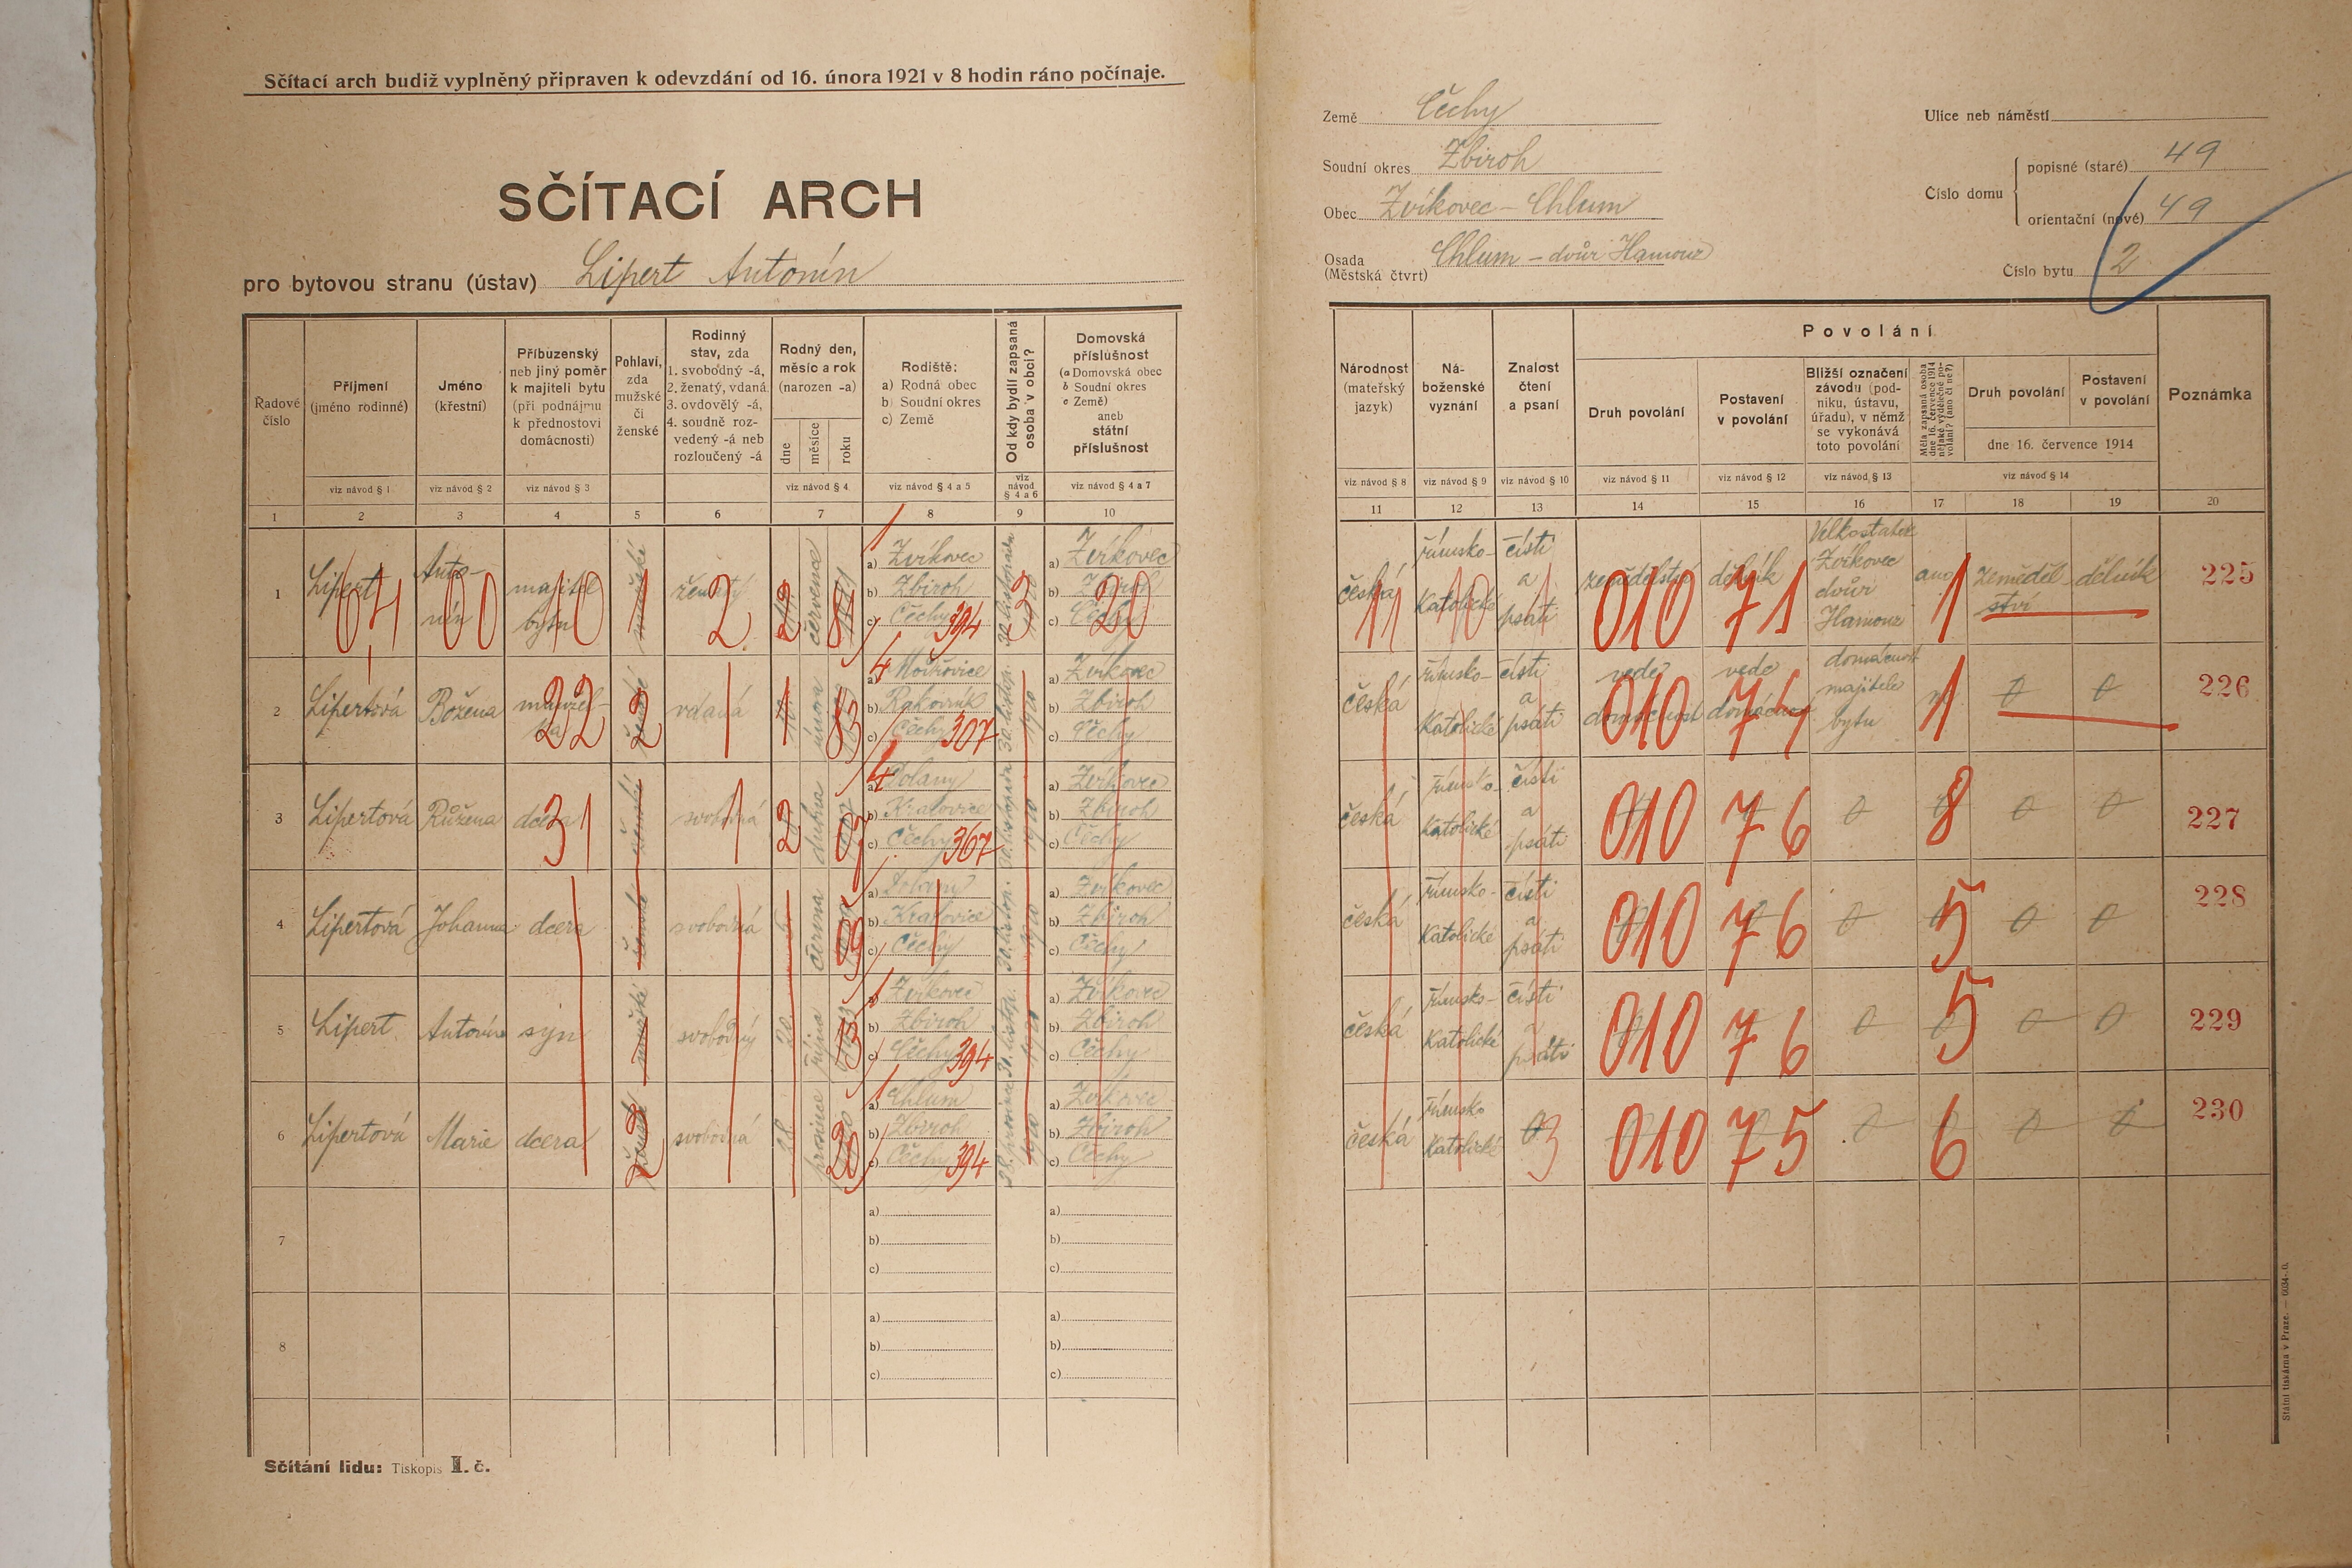 Sčítací arch budiž vyplněný připraven k odevzdání od 16. února 1921 v 8 hodin ráno počínaje.
SČÍTACÍ ARCH
pro bytovou stranu (ústav) Lipert Antonín
Země Čechy
Soudní okres Zbiroh
Obec Zvíkovec - Chlum
Osada Chlum - dvůr Hamouz
(Městská čtvrt)
Ulice neb náměstí
Číslo domu
popisné (staré) 49
orientační (nové) 49
Číslo bytu 2
Řadové číslo
Příjmení (jméno rodinné)
Jméno (křestní)
Příbuzenský neb jiný poměr k majiteli bytu (při podnájmu k přednostovi domácnosti)
Pohlaví, zda mužské či ženské
Rodinný stav, zda
1. svobodný -á,
2. ženatý, vdaná
3. ovdovělý -á,
4. soudně rozvedený -á neb rozloučený -á
Rodný den, měsíc a rok (narozen -a)
dne měsíce roku
Rodiště:
a) Rodná obec
b) Soudní okres
c) Země
Od kdy bydlí zapsaná osoba v obci?
Domovská příslušnost
(a Domovská obec
b Soudní okres
c Země)
aneb
státní příslušnost
viz návod § 1 viz návod § 2 viz návod § 3 viz návod § 4 viz návod § 4 a 5 viz návod § 4 a 6 viz návod § 4 a 7
1 2 3 4 5 6 7 8 9 10
Národnost (mateřský jazyk)
Náboženské vyznání
Znalost čtení a psaní
Povolání
Druh povolání
Postavení v povolání
Bližší označení závodu (podniku, ústavu, úřadu), v němž se vykonává toto povolání
Měla zapsaná osoba dne 16. července 1914 nějaké výdělečné povolání? (ano či ne?)
Druh povolání
Postavení v povolání
dne 16. července 1914
Poznámka
viz návod § 8 viz návod § 9 viz návod § 10 viz návod § 11 viz návod § 12 viz návod § 13 viz návod § 14
11 12 13 14 15 16 17 18 19 20
1 Lipert Antonín majitel bytu mužské ženatý července
a) Zvíkovec
b) Zbiroh
c) Čechy 394
30. listopadu 1920
a) Zvíkovec
b) Zbiroh
c) Čechy
česká římsko-katolické čísti a psáti zemědelství dělník Velkostatek Zvíkovec dvůr Hamouz ano zemědělství dělník 225
010 71 1
2 Lipertová Božena manželka ženské vdaná února
b) Rakovník
c) Čechy 307
30. listop. 1920
a) Zvíkovec
b) Zbiroh
c) Čechy
česká římsko-katolické čísti a psáti vede domácnost vede domácnost domácnost majitele bytu ne 0 0 226
010 74 1
3 Lipertová Růžena dcera ženské svobodná dubna
a) Dolany
b) Kralovice
c) Čechy 367
30. listopadu 1920
a) Zvíkovec
b) Zbiroh
c) Čechy
česká římsko-katolické čísti a psáti 010 76 0 8 0 0 227
4 Lipertová Johanna dcera ženské svobodná června
a) Dolany
b) Kralovice
c) Čechy
30. listop. 1920
a) Zvíkovec
b) Zbiroh
c) Čechy
česká římsko-katolické čísti a psáti 010 76 0 5 0 0 228
5 Lipert Antonín syn mužské svobodný 20. října
a) Zvíkovec
b) Zbiroh
c) Čechy 394
30. listop. 1920
a) Zvíkovec
b) Zbiroh
c) Čechy
česká římsko-katolické čísti a psáti 010 76 0 5 0 0 229
6 Lipertová Marie dcera ženské svobodná 28. prosince
a) Chlum
b) Zbiroh
c) Čechy 394
28. prosince 1920
a) Zvíkovec
b) Zbiroh
c) Čechy
česká římsko-katolické 3 010 75 0 6 0 0 230
7
a)
b)
c)
a)
b)
c)
8
a)
b)
c)
a)
b)
c)
Sčítání lidu: Tiskopis I. č.
Státní tiskárna v Praze. — 6034-0.